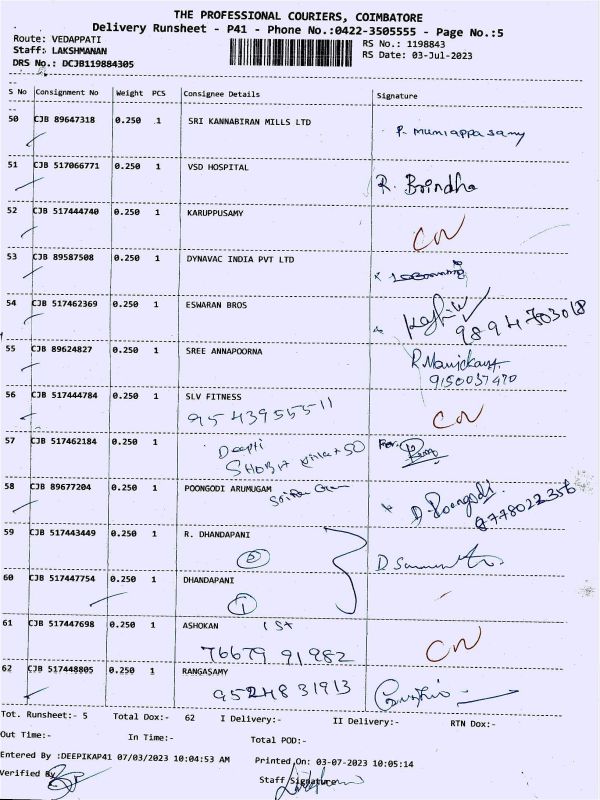 THE PROFESSIONAL COURIERS, COIMBATORE
Delivery Runsheet - P41 - Phone No.:0422-3505555 - Page No.:5
Route: VEDAPPATI
RS No.: 1198843
Staff: LAKSHMANAN
RS Date: 03-Jul-2023
DRS No.: DCJB119884305
S No Consignment No Weight PCS Consignee Details Signature
50 CJB 89647318 0.250 1 SRI KANNABIRAN MILLS LTD P. Muniappasamy
51 CJB 517066771 0.250 1 VSD HOSPITAL R. Brindha
52 CJB 517444740 0.250 1 KARUPPUSAMY CN
53 CJB 89587508 0.250 1 DYNAVAC INDIA PVT LTD
54 CJB 517462369 0.250 1 ESWARAN BROS
9894703018
55 CJB 89624827 0.250 1 SREE ANNAPOORNA R. Manickam
9150037470
56 CJB 517444784 0.250 1 SLV FITNESS CN
9543955511
57 CJB 517462184 0.250 1
Deepti For.
SHOBA
58 CJB 89677204 0.250 1 POONGODI ARUMUGAM D. Poongodi
59 CJB 517443449 0.250 1 R. DHANDAPANI
2
60 CJB 517447754 0.250 1 DHANDAPANI
1
61 CJB 517447698 0.250 1 ASHOKAN 1 St
76679 91982 CN
62 CJB 517448805 0.250 1 RANGASAMY
9524831913
Tot. Runsheet:- 5 Total Dox:- 62 I Delivery:- II Delivery:- RTN Dox:-
Out Time:- In Time:- Total POD:-
Entered By :DEEPIKAP41 07/03/2023 10:04:53 AM Printed On: 03-07-2023 10:05:14
Verified By Staff Signature